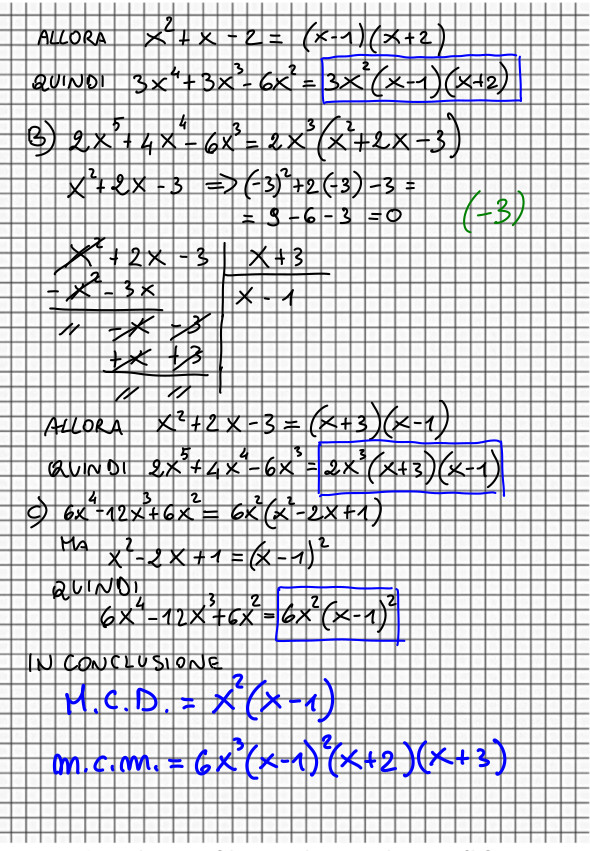 ALLORA x² + x - 2 = (x-1)(x+2)
QUINDI 3x⁴+3x³-6x² = 3x²(x-1)(x+2)
B) 2x⁵+4x⁴-6x³ = 2x³(x²+2x-3)
x²+2x-3 => (-3)²+2(-3)-3 =
= 9-6-3 = 0 (-3)
x² + 2x - 3 | x+3
- x² - 3x x - 1
// - x - 3
+ x + 3
// //
ALLORA x²+2x-3 = (x+3)(x-1)
QUINDI 2x⁵+4x⁴-6x³ = 2x³(x+3)(x-1)
C) 6x⁴-12x³+6x² = 6x²(x²-2x+1)
MA x²-2x+1 = (x-1)²
QUINDI
6x⁴-12x³+6x² = 6x²(x-1)²
IN CONCLUSIONE
M.C.D. = x²(x-1)
m.c.m. = 6x³(x-1)²(x+2)(x+3)